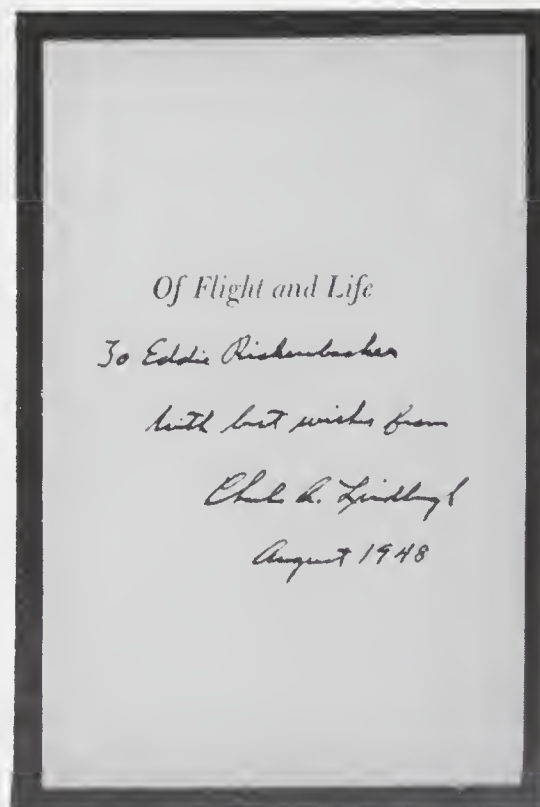 Of Flight and Life
To Eddie Rickenbacker
with best wishes from
Charles A. Lindbergh
August 1948